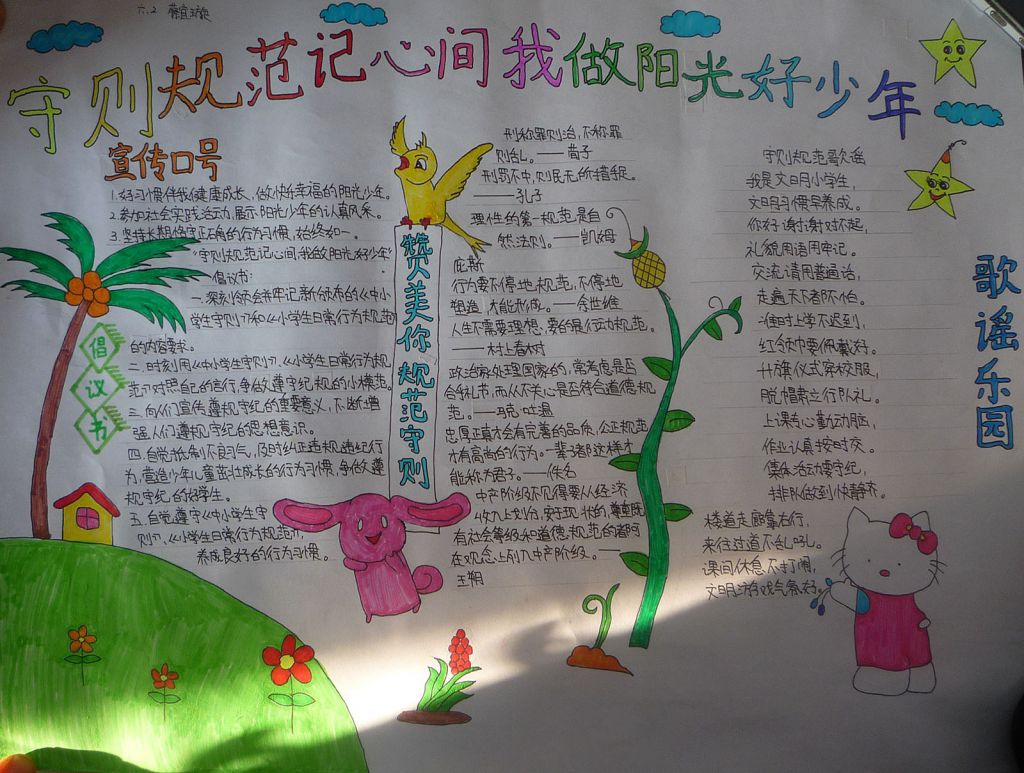 六.2 蔡宜璇
守则规范记心间我做阳光好少年
宣传口号
1.好习惯伴我健康成长,做快乐幸福的阳光少年。
2.参加社会实践活动,展示阳光少年的认真风采。
3.坚持长期恪守正确的行为习惯,始终如一。
"守则规范记心间,我做阳光好少年"
倡议书:
一.深刻领会并牢记新颁布的《中小
学生守则》和《小学生日常行为规范》
的内容要求。
二.时刻用《中小学生守则》,《小学生日常行为规
范》对照自己的言行,争做遵守纪规的小模范。
三.向人们宣传遵规守纪的重要意义,不断增
强人们遵规守纪的思想意识。
四.自觉抵制不良习气,及时纠正违规违纪行
为,营造少年儿童茁壮成长的行为习惯,争做遵
规守纪的好学生。
五.自觉遵守《中小学生守
则》,《小学生日常行为规范》,
养成良好的行为习惯。
倡议书
赞美你规范守则
刑称罪则治,不称罪
则乱。——荀子
刑罚不中,则民无所措手足。
——孔子
理性的第一规范是自
然法则。——凯姆
庇斯
行为要不停地规范,不停地
塑造,才能形成。——余世维
人生不需要理想,需要的是行动规范。
——村上春树
政治家处理国家的,常考虑是否
合礼节,而从不关心是否符合道德规
范。——马克·吐温
忠厚正直才会有完善的品质,公正规范
才有高尚的行为。一辈子都这样才
能称为君子。——佚名
中产阶级不见得要从经济
收入上划分,安于现状的,尊重既
有社会等级和道德规范的都可
在观念上列入中产阶级。——
王朔
守则规范歌谣
我是文明小学生,
文明习惯早养成。
你好谢谢对不起,
礼貌用语用牢记。
交流请用普通话,
走遍天下都不怕。
准时上学不迟到,
红领巾要佩戴好。
升旗仪式穿校服,
脱帽肃立行队礼。
上课专心勤动脑,
作业认真按时交。
集体活动要守纪,
排队做到快静齐。
楼道走廊靠右行,
来往过道不乱吼。
课间休息不打闹,
文明游戏气氛好。
歌谣乐园